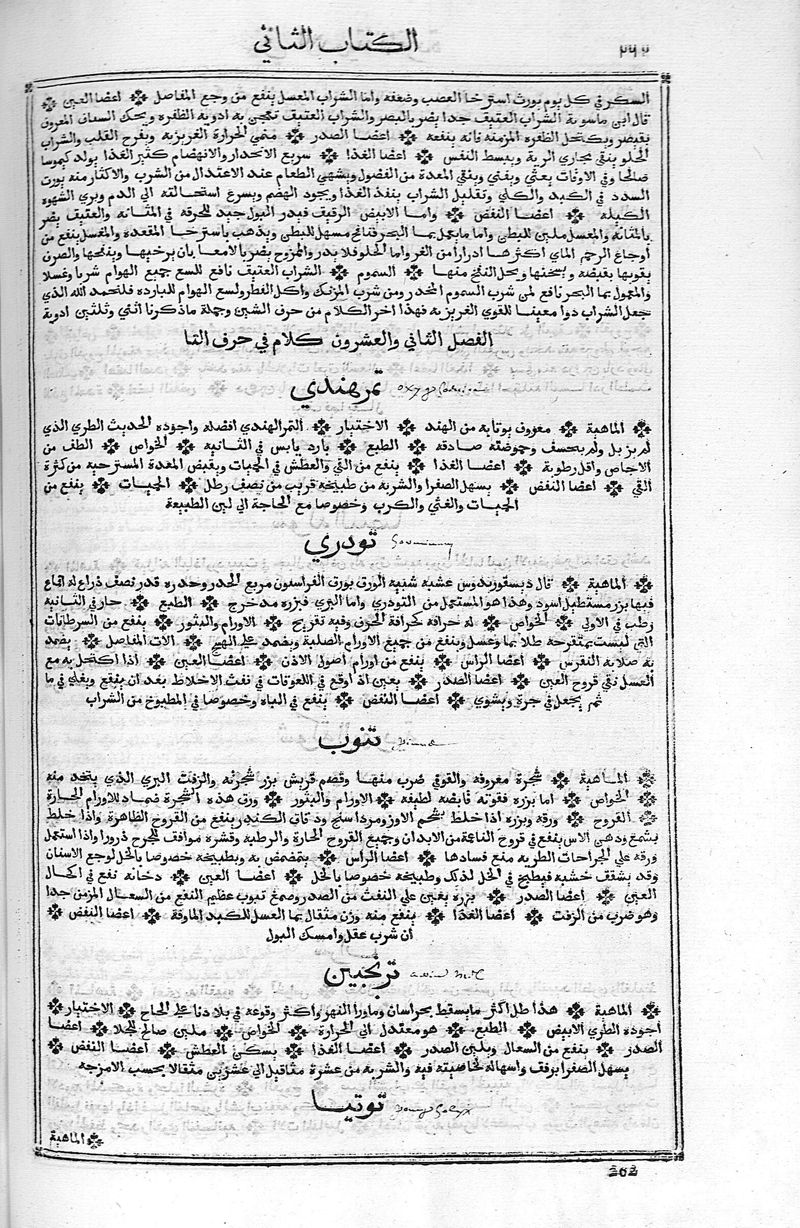 الكتاب الثاني
السكر في كل يوم يورث استرخا العصب وضعفه واما الشراب المعسل ينفع من وجع المفاصل اعضا العين
قال ابى ماسوية الشراب العتيق جدا يضر بالبصر والشراب العتيق تعجن به ادوية الظفره ويحك السمان المعرون
بقيصر ويكتحل الظفره المزمنه فانه ينفعه اعضا الصدر منمي الحرارة الغريزيه ويفرح القلب والشراب
الحلو ينقي مجاري الرية ويبسط النفس اعضا الغذا سريع الانحدار والانهضام كثير الغذا يولد كيموسا
صالحا وفي الاوقات يعثي ويغني وينقي المعدة من الفضول ويشهي الطعام عند الاعتدال من الشرب والاكثار منه يورث
السدد في الكبد والكلي وتقليل الشراب ينفذ الغذا ويجود الهضم ويسرع استحالته الي الدم ويري الشهوة
الكيله اعضا النفض واما الابيض الرقيق فيدر البول جيد للحرقه في المثانه والعتيق يضر
بالمثانه والمعسل ملين للبطى واما ما يعمل بما البحر فنافخ مسهل للبطى ويذهب باسترخا المقعدة والمعسل ينفع من
اوجاع الرحم الماي اكثرها ادرارا من الغر واما الحلو فلا يدر والمزوج يضر بالامعا بان يرخيها وينفخها والصرن
يقويها بقبضه ويسخنها ويحل النفخ منها السموم الشراب العتيق نافع للسع جميع الهوام شربا وغسلا
والمعمول بما البحر نافع لمى شرب السموم المخدر ومن شرب المزنك واكل الفطر ولسع الهوام للبارده فلتحمد الله الذي
جعل الشراب دوا معينا للقوي الغريزيه فهذا اخر الكلام من حرف الشين وجملة ما ذكرنا اثني وثلثين ادوية
الفصل الثاني والعشرون كلام في حرف التا
تمر هندي
الماهية معروف يوتا به من الهند الاختيار التمر الهندي افضله واجوده الحديث الطري الذي
لم يزبل ولم يحسف وحموضته صادقه الطبع بارد يابس في الثانيه الخواص الطف من
الاجاص واقل رطوبة اعضا الغذا ينفع من القي والعطش في الحميات ويقبض المعدة المسترحيه من كثرة
القي اعضا النفض يسهل الصفرا والشربه من طبيخه قريب من نصف رطل الحميات ينفع من
الحميات والغثي والكرب وخصوصا مع الحاجة الي لين الطبيعة
تودري
الماهية قال ديسقوزيدوس عشبه شبيه الورق بورق الفراسون مربع الجدر وحدره قدر نصف ذراع له اقماع
فيها بزر مستطيل اسود وهذا هو المستعمل من التودري واما البري فبزره مدحرج الطبع حار في الثانيه
رطب في الاولي الخواص له حرافة كحرافة الحرف وفيه تقريح الاورام والبثور ينفع من السرطانات
التي ليست بمتقرحة طلا بما وعسل وينفع من جميع الاورام الصلبة ويضمد علي الهيم الات المفاصل يضمد
به صلابه النقرس اعضا الراس ينفع من اورام اصول الاذن اعضا العين اذا اكتحل به مع
العسل نقي قروح العين اعضا الصدر يعين اذ اوقع في اللعوقات في نفث الاخلاط بعد ان ينقع ويغلي في ما
ثم يجعل في جرة ويشوي اعضا النفض ينفع في الباه وخصوصا في المطبوخ من الشراب
تنوب
الماهية شجرة معروفه والقوفي ضرب منها وقضم قريش بزر شجرته والزفت البري الذي يتخد منه
الخواص اما بزره فقوته قابضه لطيفه الاورام والبثور ورق هذه الشجرة ضماد للاورام الحارة
القروح ورقه وبزره اذا خلط بشحم الاوز ومرداسنج ودقاق الكندر ينفع من القروح الظاهرة واذا خلط
بشمع ودهى الاس ينفع في قروح الناعمة من الابدان وجميع القروح الحارة والرطبه وقشره موافق للجرح ذرورا واذا استعمل
ورقه علي الجراحات الطريه منع فسادها اعضا الراس يتمضمض به وبطبيخه خصوصا بالخل لوجع الاسنان
وقد يشقف خشبه فيطبخ في الخل لذلك وطبيخه خصوصا بالخل اعضا العين دخانه نفع في اكحال
العين اعضا الصدر بزره يعين علي النفث من الصدر وصمغ تنوب عظيم النفع من السعال المزمن جدا
وهو ضرب من الزفت اعضا الغذا ينفع منه وزن مثقال بما العسل للكبد الماوفة اعضا النفض
أن شرب عقل وامسك البول
ترنجبين
الماهية هذا طل اكثر ما يسقط بخراسان وماورا النهر واكثر وقوعه في بلادنا علي الحاج الاختيار
اجوده الطري الابيض الطبع هو معتدل الي الحرارة الخواص ملين صالح للجلا اعضا
الصدر ينفع من السعال ويلين الصدر اعضا الغذا يسكن العطش اعضا النفض
يسهل الصفرا برفق واسهاله بخاصيته فيه والشربه من عشرة مثاقيل الي عشرين مثقالا بحسب الامزجه
توتيا
الماهية
262